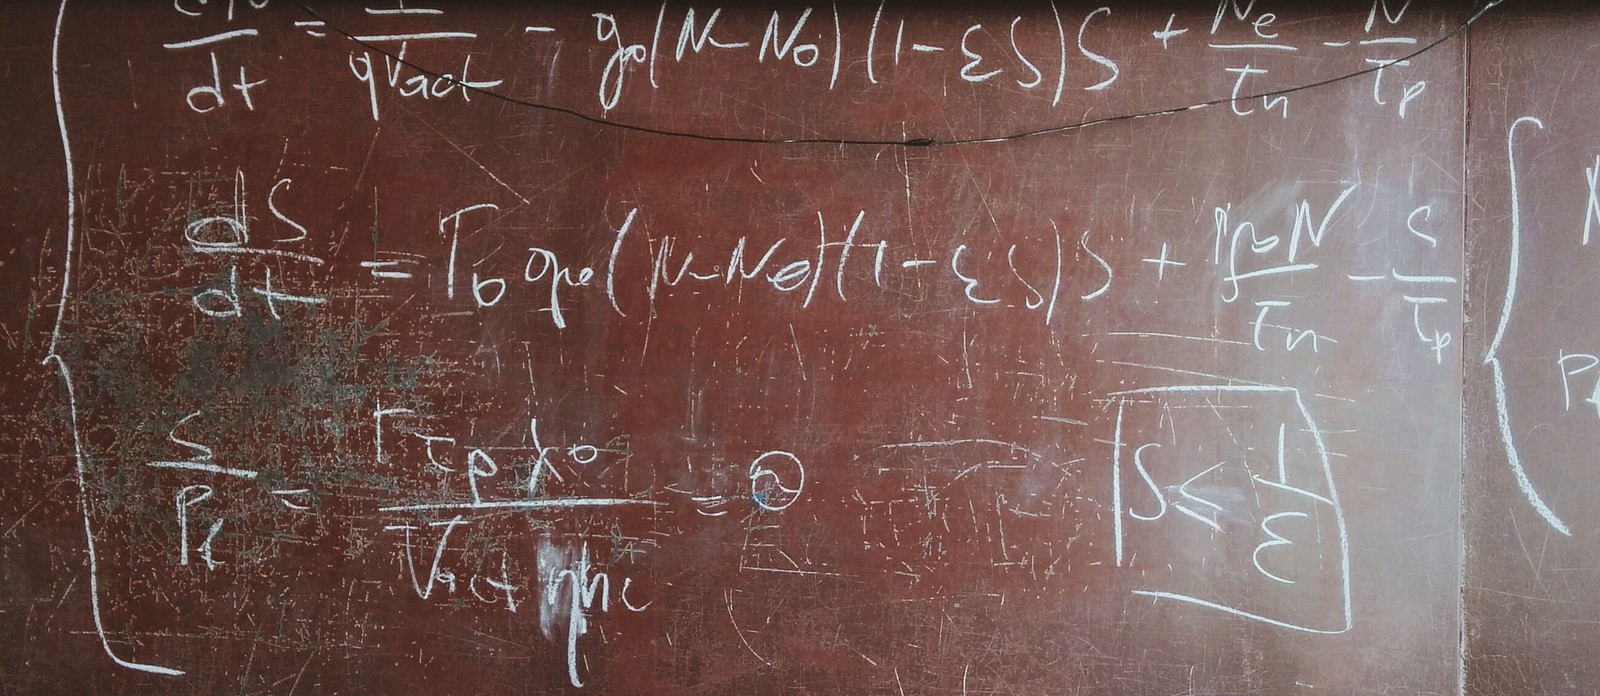 dN/dt = I/qVact - g₀(N-N₀)(1-εS)S + Ne/τn - N/τp
dS/dt = Γ₀ g₀(N-N₀)(1-εS)S + N/τn - S/τp
S/Pf = Γτpλ₀/Vact ηhc = ②
S ≤ 1/ε